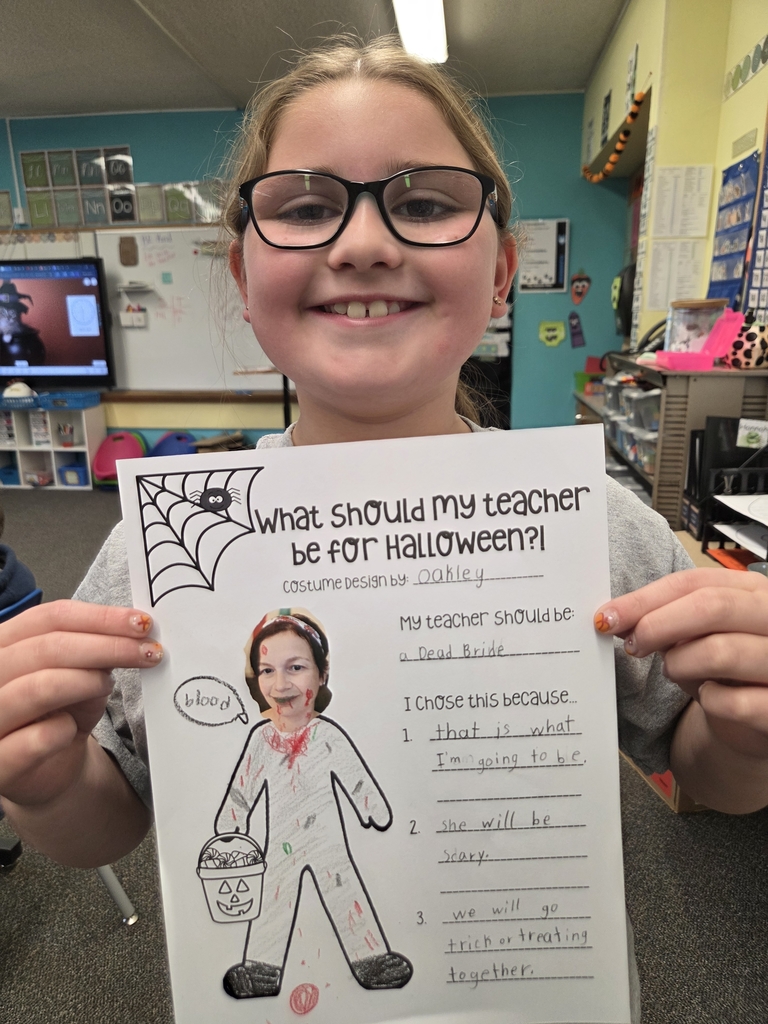 What Should my teacher
be for Halloween?!
Costume Design by: Oakley
My teacher should be:
a Dead Bride
blood
I chose this because...
1. that is what
I'm going to be.
2. she will be
scary.
3. we will go
trick or treating
together.